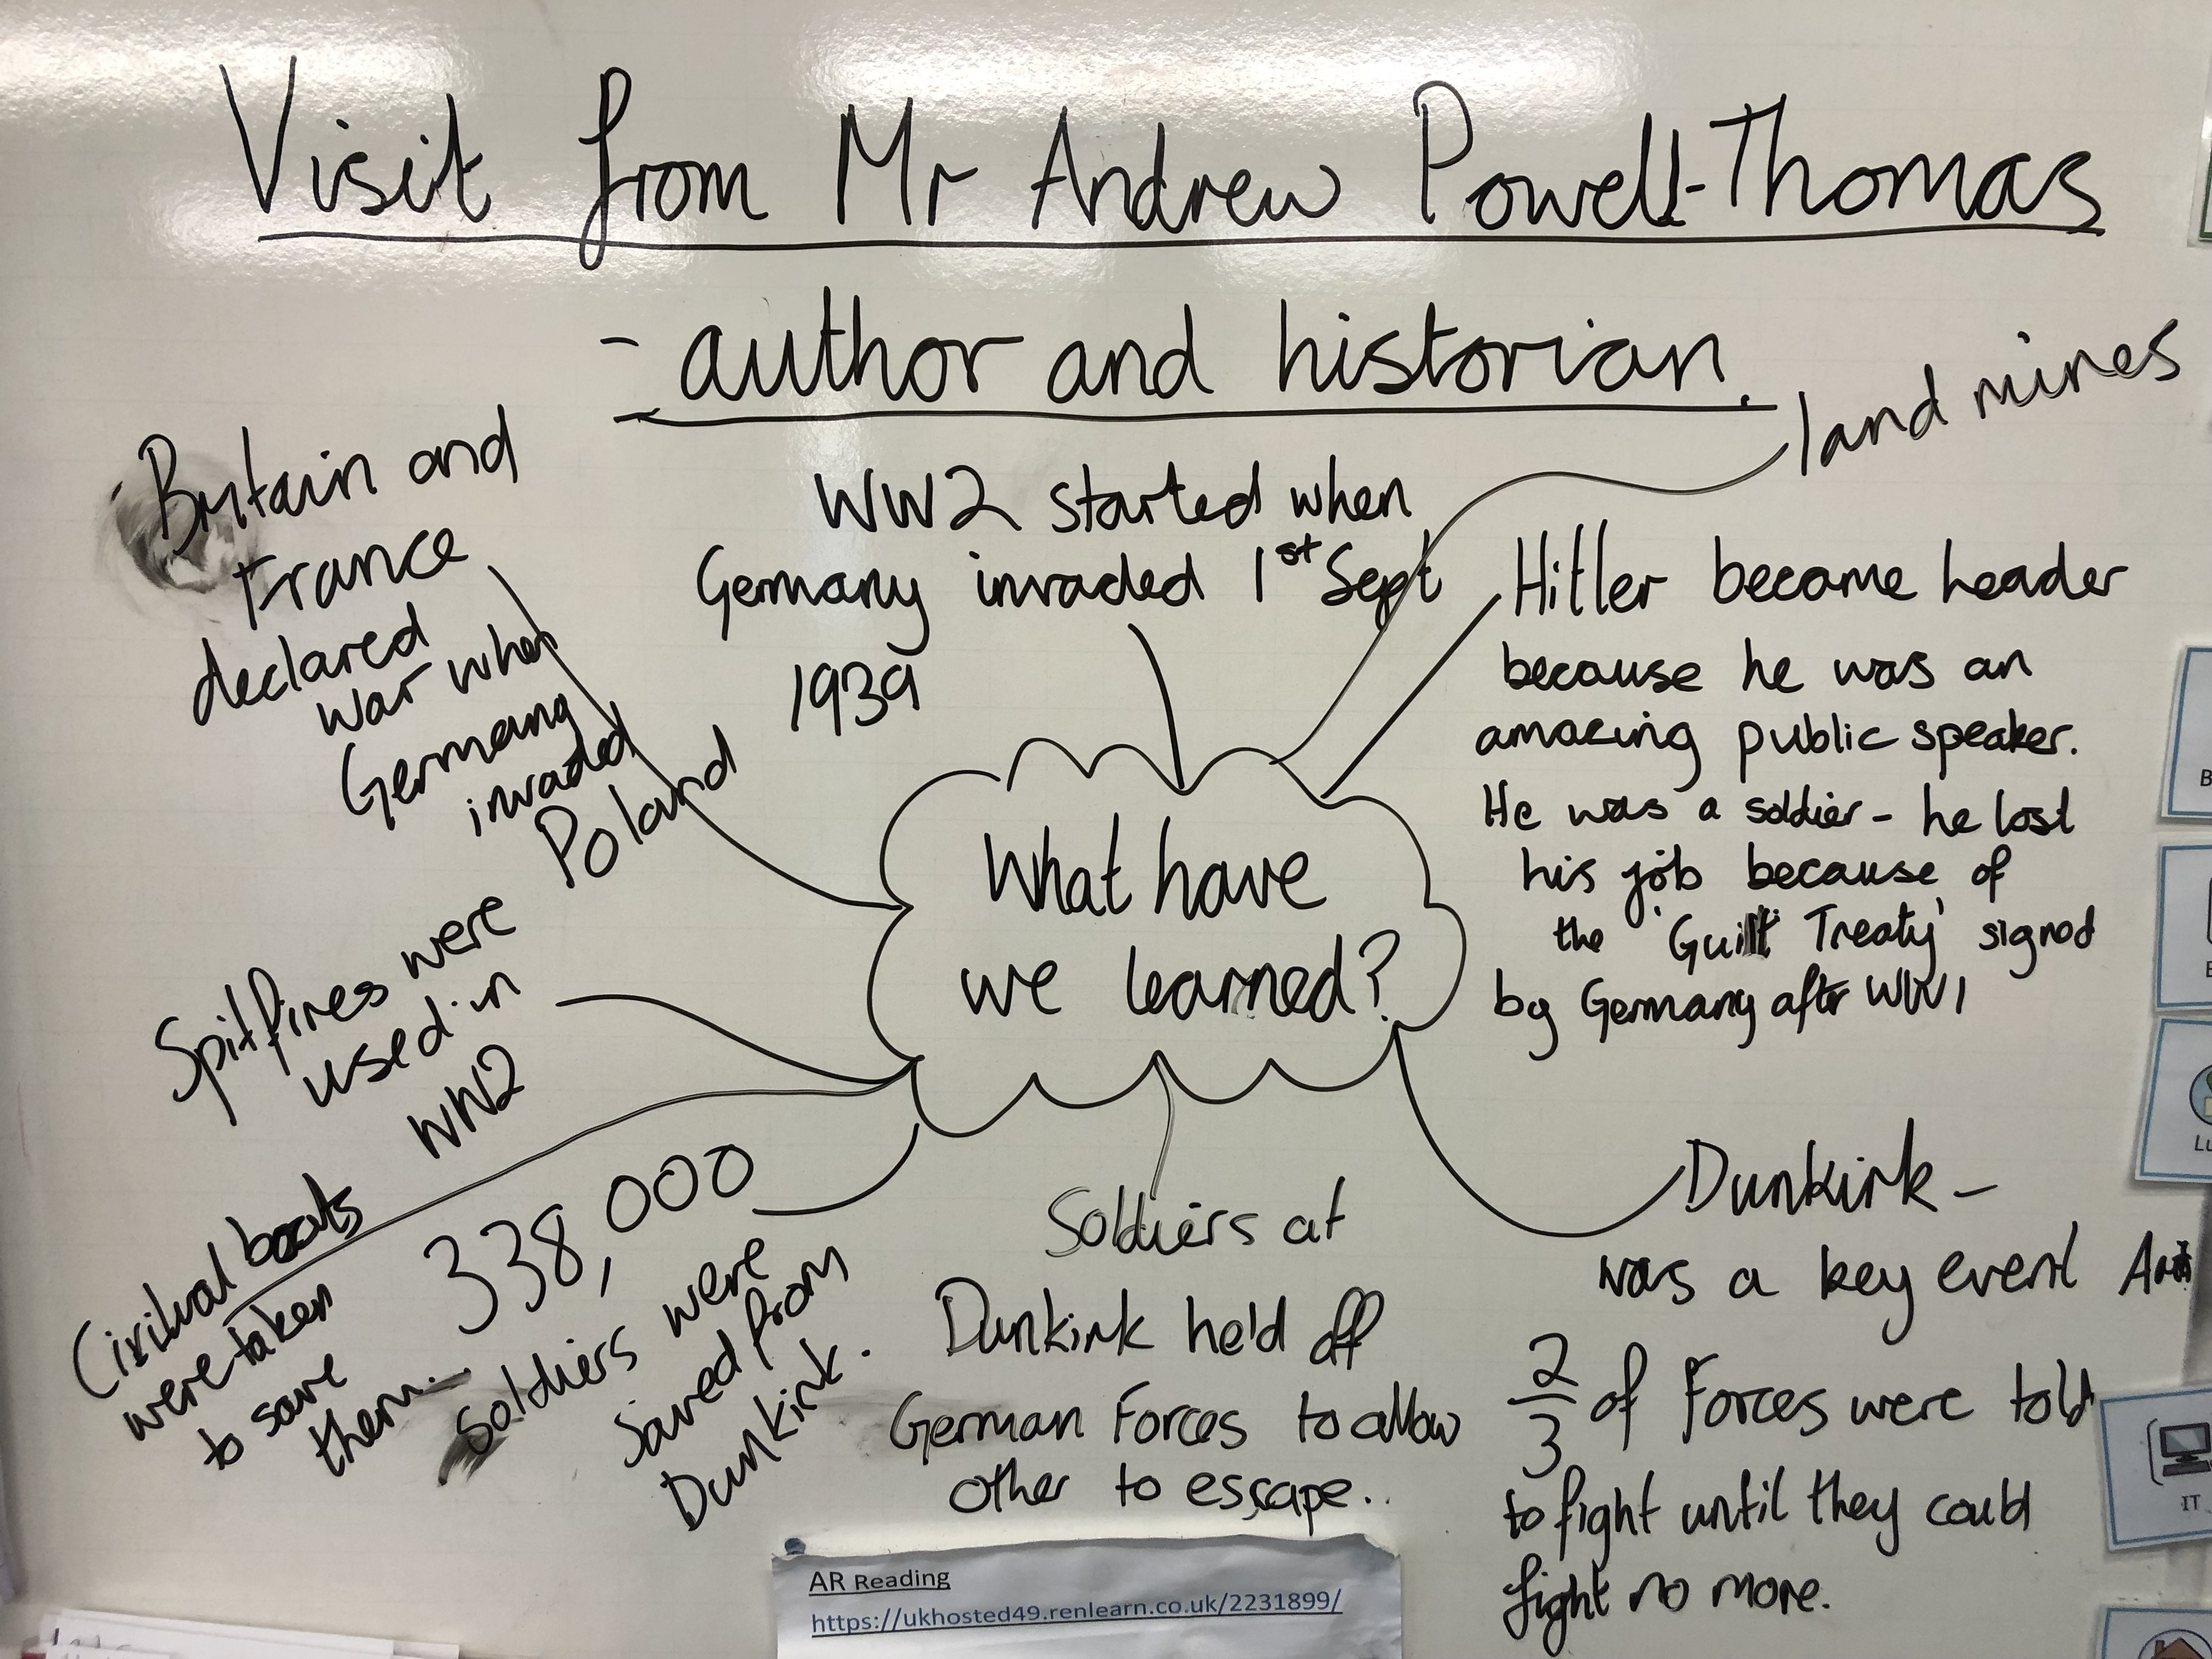 Visit from Mr Andrew Powell-Thomas
- author and historian.
land mines
WW2 started when
Germany invaded 1st Sept
1939
Britain and
France
declared
war when
Germany
invaded
Poland
Hitler became header
because he was an
amazing public speaker.
He was a soldier - he lost
his job because of
the 'Guilt Treaty' signed
by Germany after WW1
What have
we learned?
Spitfires were
used in
WW2
Civilual boats
were taken
to save
them.
338,000
soldiers were
saved from
Dunkirk.
Soldiers at
Dunkirk held off
German Forces to allow
other to escape..
Dunkirk -
was a key event
2/3 of Forces were told
to fight until they could
fight no more.
AR Reading
https://ukhosted49.renlearn.co.uk/2231899/
IT